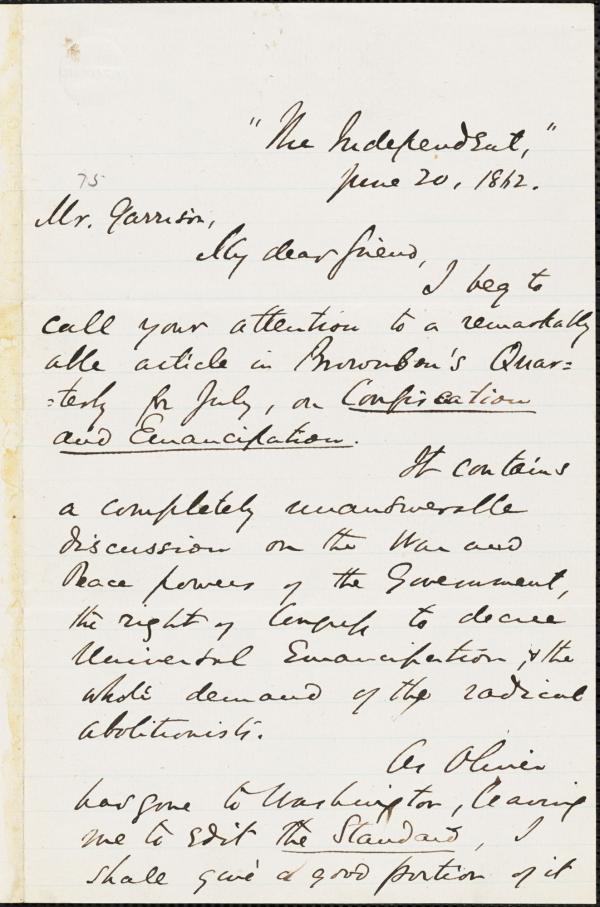 "The Independent,"
June 20, 1862.
75
Mr. Garrison,
My dear friend,
I beg to
call your attention to a remarkably
able article in Brownson's Quar=
=terly for July, on Confiscation
and Emancipation.
It contains
a completely unanswerable
discussion on the War and
Peace powers of the Government,
the right of Congress to decree
Universal Emancipation, & the
whole demand of the radical
abolitionists.
As Oliver
has gone to Washington, leaving
me to edit the Standard, I
shall give a good portion of it